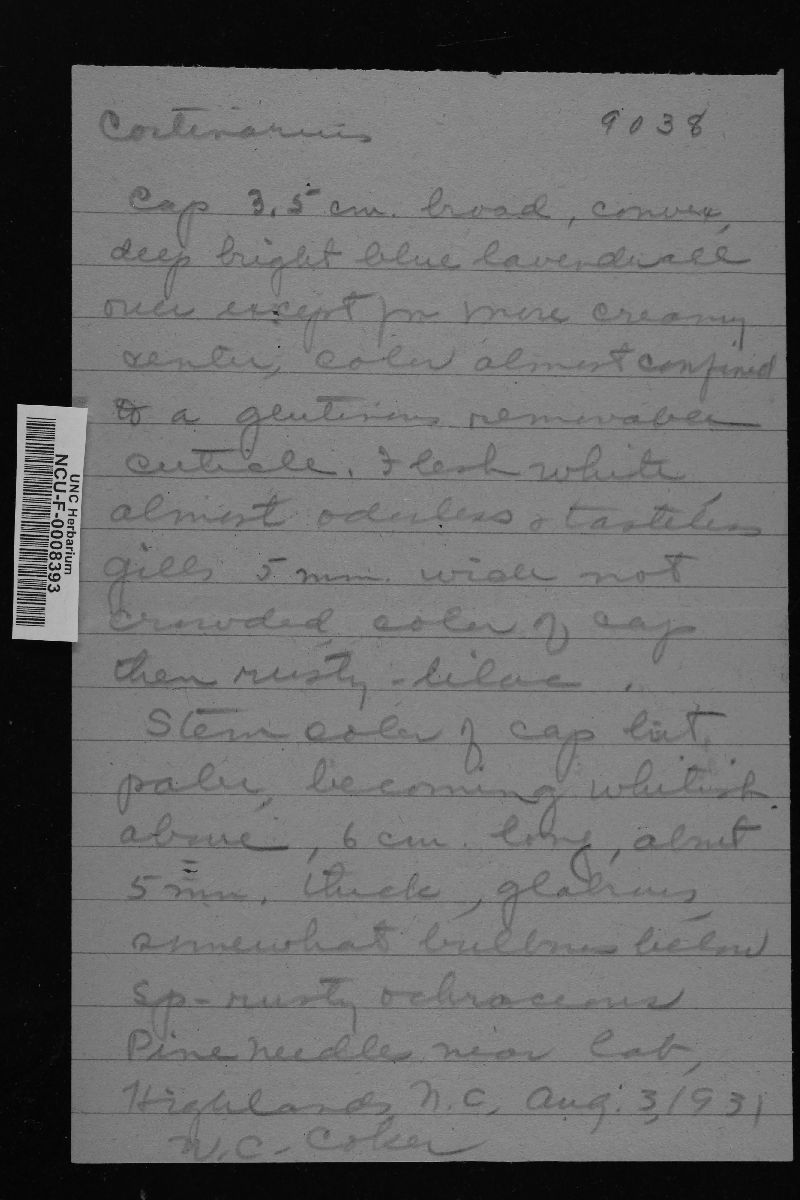 Cortinarius 9038
Cap 3.5 cm. broad, convex,
deep bright blue lavender all
over except for more creamy
center, color almost confined
to a glutinous removable
cuticle. Flesh white,
almost odorless & tasteless
gills 5 mm. wide not
crowded, color of cap
then rusty-lilac.
Stem color of cap but
paler, becoming whitish
above, 6 cm. long, about
5 mm. thick, glabrous,
somewhat bulbous below
Sp- rusty ochraceous
Pine needles near lab,
Highlands, N.C. Aug. 3, 1931
W.C. Coker
UNC Herbarium
NCU-F-0008393